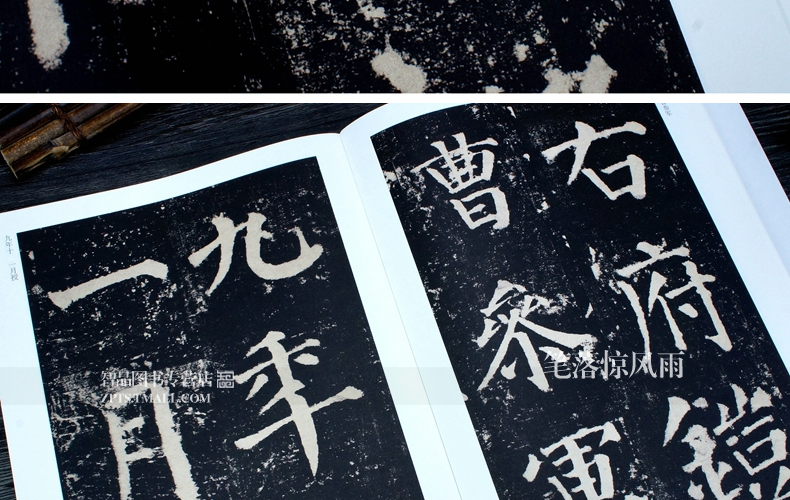 右府鎧
曹叅軍
九年
一月
九年十一月秋
笔落惊风雨
智品图书专营店
ZPTS.TMALL.COM